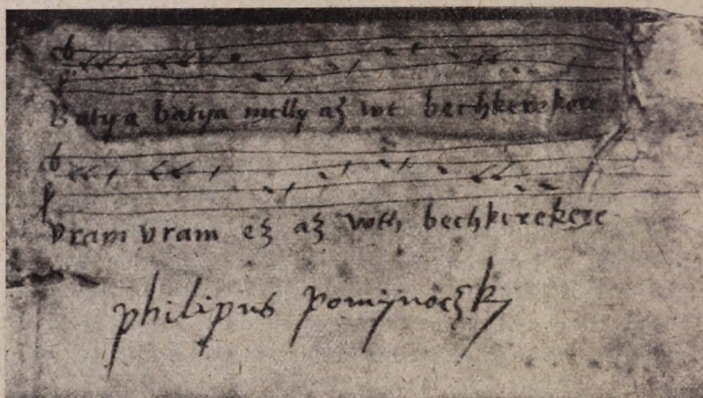 Batya batya melly az wt bechkerekere
vram vram ez az woth bechkerekere
philipus pominoczky